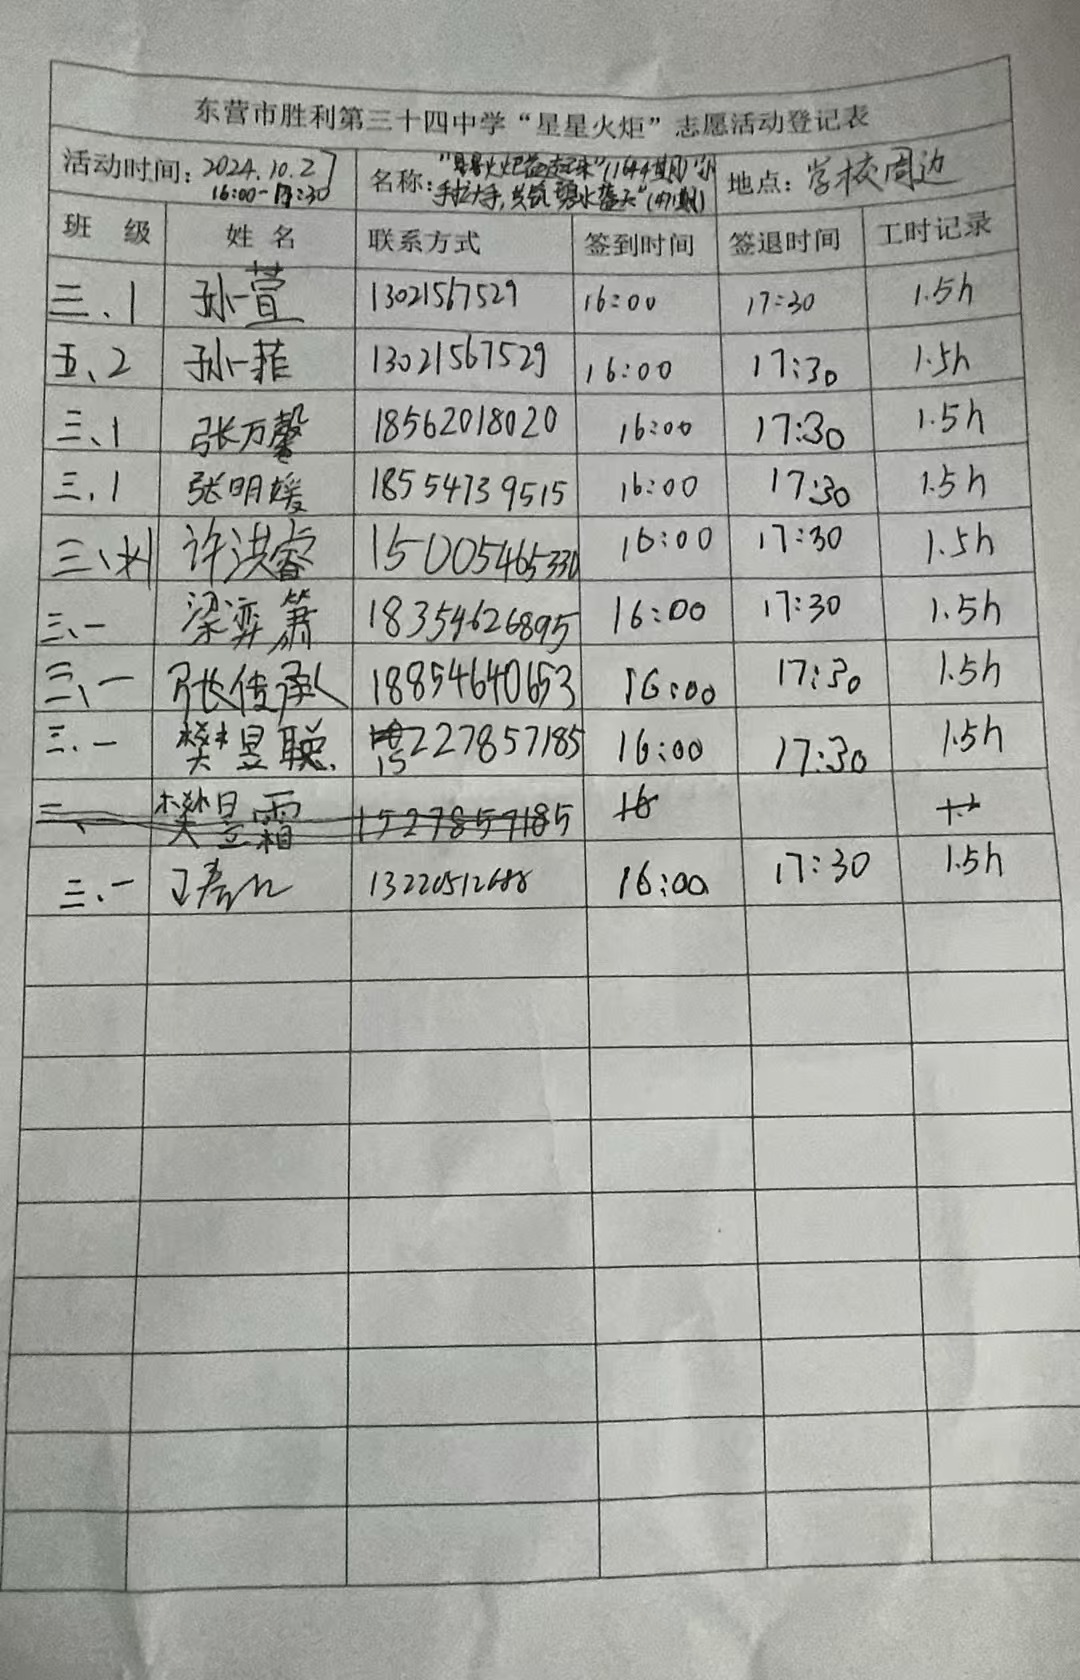 东营市胜利第三十四中学“星星火炬”志愿活动登记表
活动时间: 2024.10.27 16:00-17:30 名称: 地点: 学校周边
班 级 姓 名 联系方式 签到时间 签退时间 工时记录
三、1 孙一萱 13021567529 16:00 17:30 1.5h
五、2 孙一菲 13021567529 16:00 17:30 1.5h
三、1 张万馨 18562018020 16:00 17:30 1.5h
三、1 张明媛 18554739515 16:00 17:30 1.5h
三、 许洪睿 15005465330 16:00 17:30 1.5h
三、一 梁弈箫 18354626895 16:00 17:30 1.5h
三、一 张传承 18854640653 16:00 17:30 1.5h
三、一 樊昱聪 15227857185 16:00 17:30 1.5h
三、 樊昱霜 1527857185 16
三、一 13220512688 16:00 17:30 1.5h